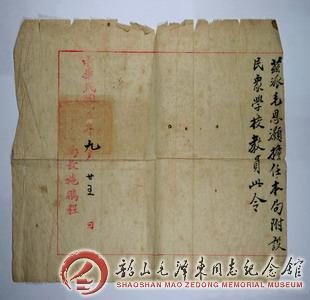 茲派毛恩灝擔任本局附設
民衆學校教員此令
中華民國 年九月廿五日
施鵬程
韶山毛泽东同志纪念馆
SHAOSHAN MAO ZEDONG MEMORIAL MUSEUM